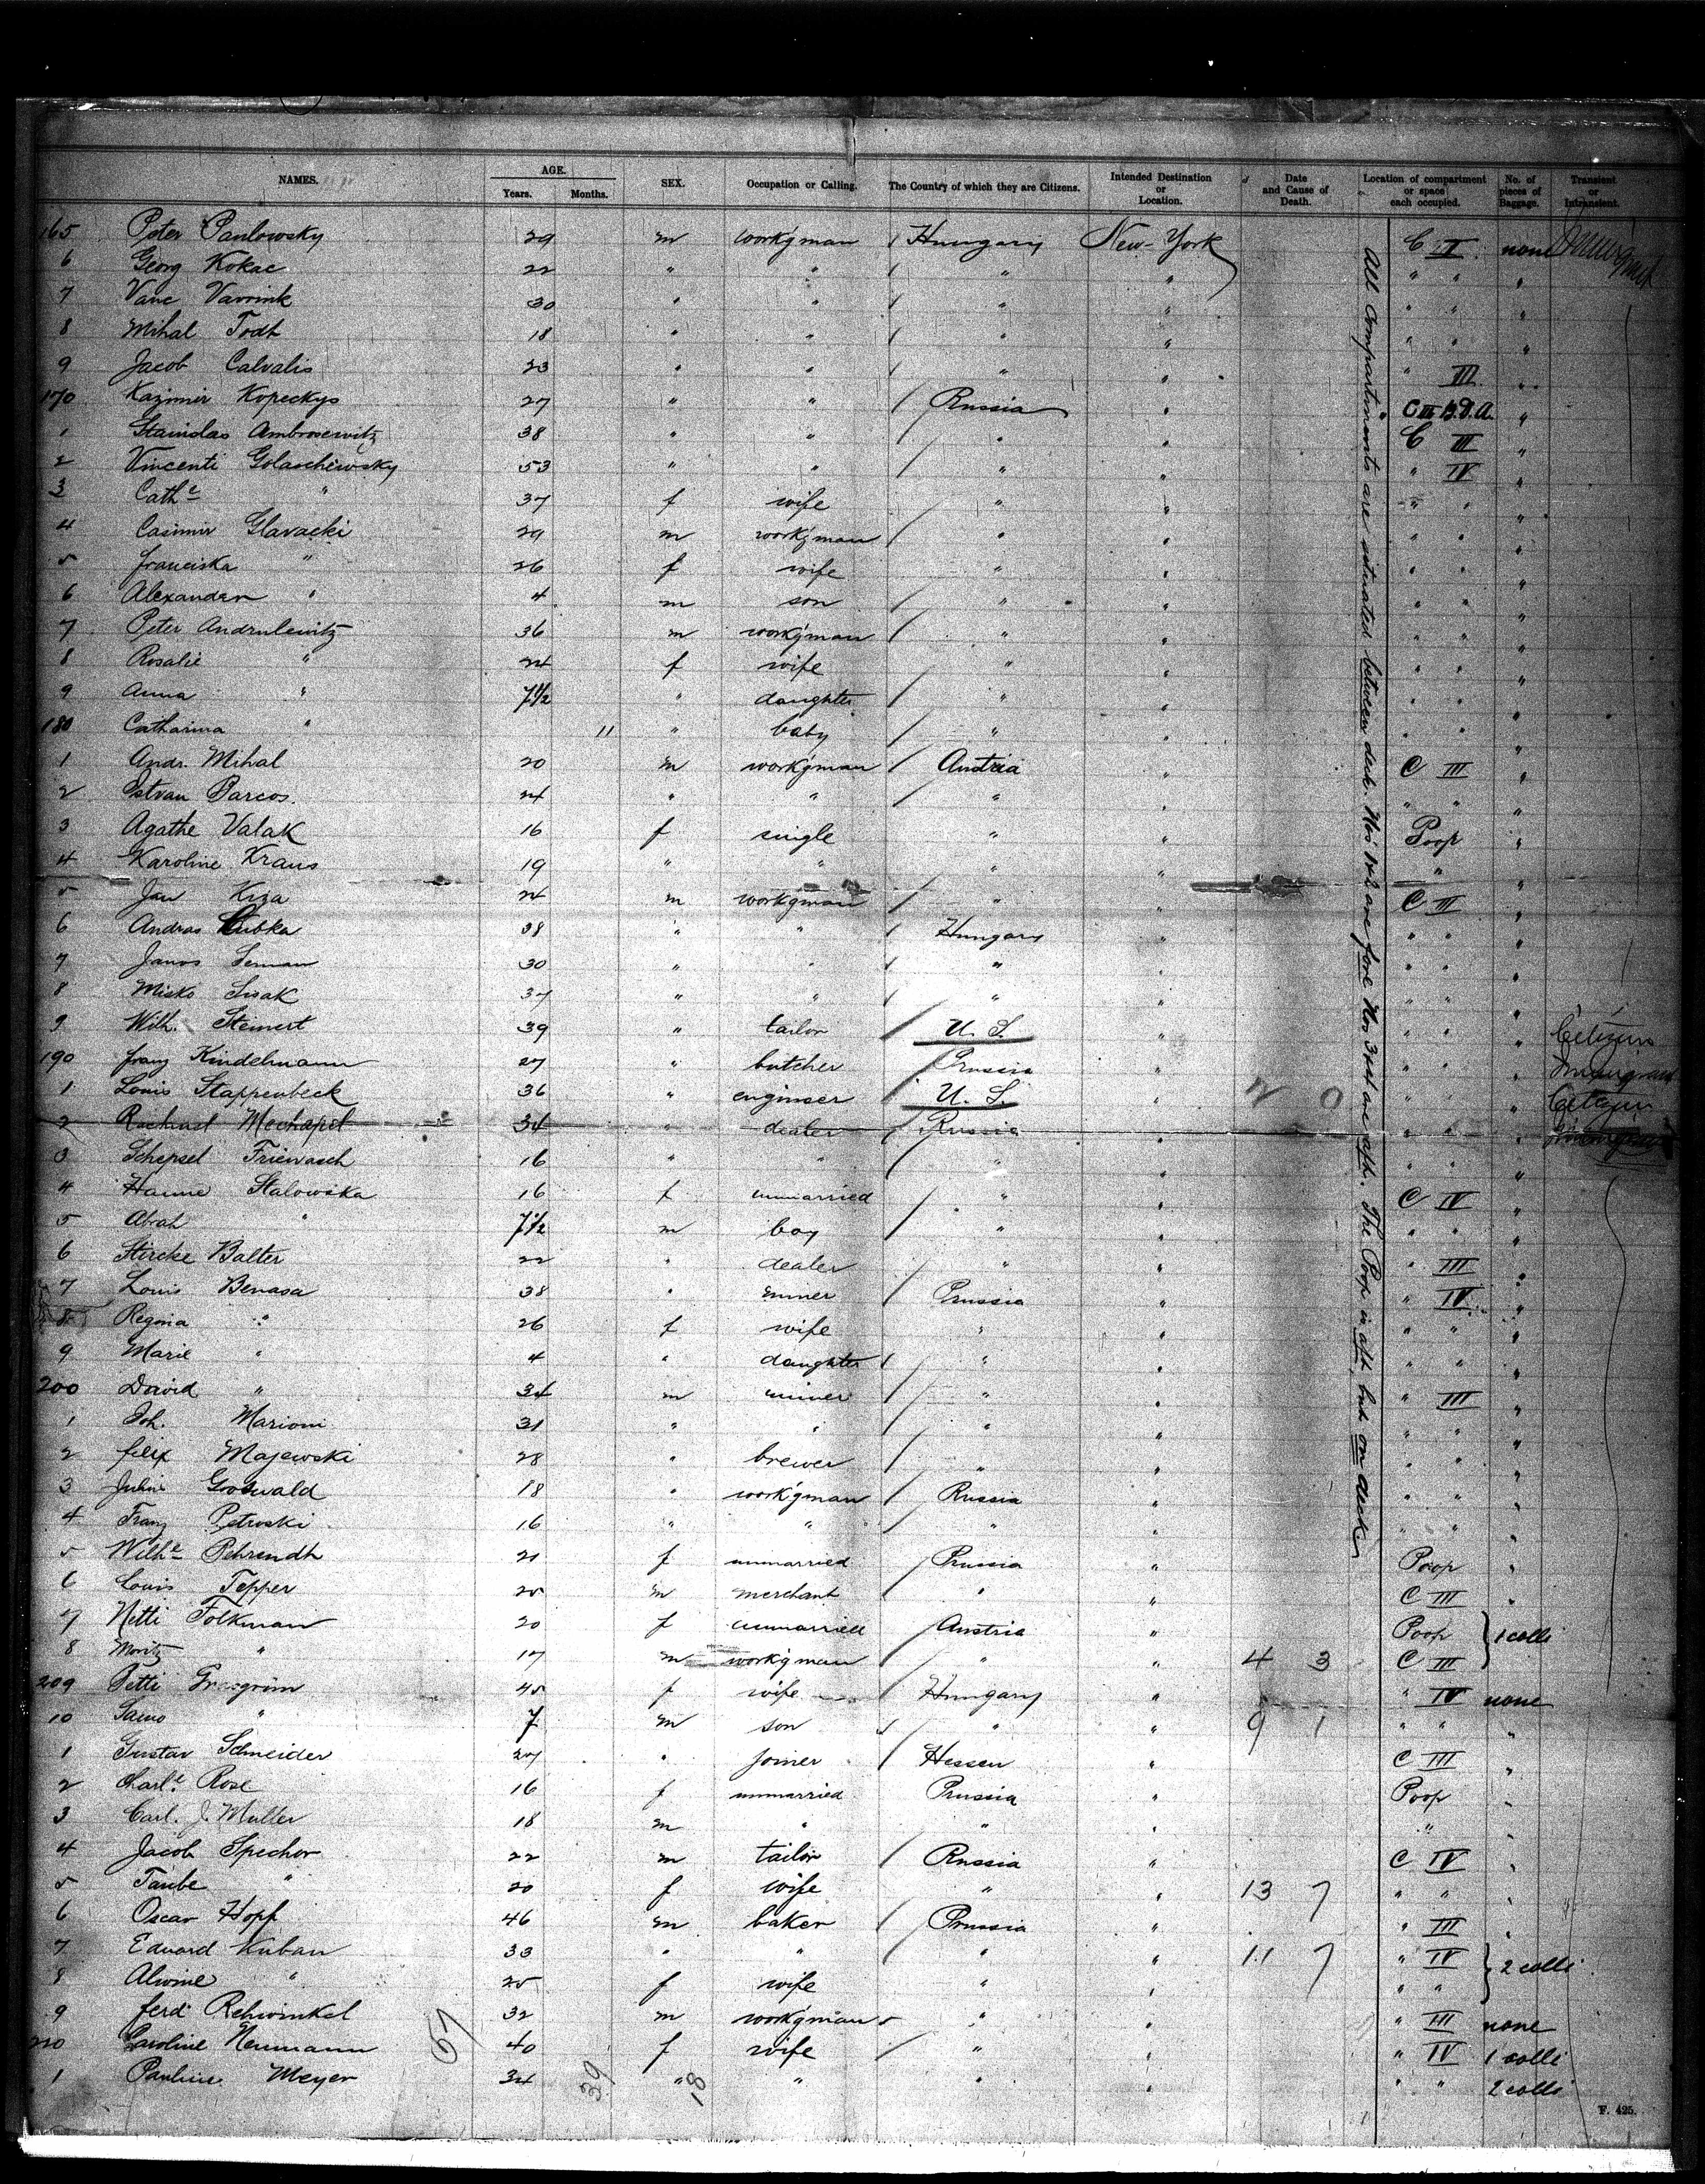 NAMES. AGE. Years. Months. SEX. Occupation or Calling. The Country of which they are Citizens. Intended Destination or Location. Date and Cause of Death. Location of compartment or space each occupied. No. of pieces of Baggage. Transient or Intransient.
165 Peter Pavlowsky 29 m workg'man Hungary New-York C II none
6 Georg Kokac 22 " " " " " " "
7 Vanc Vavrink 30 " " " " " " "
8 Mihal Todt 18 " " " " " " "
9 Jacob Calvalis 23 " " " " " III "
170 Kazimir Kopeckys 27 " " Russia " "
1 Stanislas Ambrosewitz 38 " " " " C III "
2 Vincenti Golaschewsky 53 " " " " " IV "
3 Cathe " 37 f wife " " " " "
4 Casimir Glavacki 29 m workg'man " " " " "
5 Franciska " 26 f wife " " " " "
6 Alexander " 4 m son " " " " "
7 Peter Andrulewitz 36 m workg'man " " " " "
8 Rosalie " 24 f wife " " " " "
9 Anna " 7 1/2 " daughter " " " " "
180 Catharina " 11 " baby " " " " "
1 Andr. Mihal 20 m workg'man Austria " C III "
2 Istvan Barcos 24 " " " " " " "
3 Agathe Valak 16 f single " " Poop "
4 Karoline Kraus 19 " " " " " "
5 Jan Kiza 24 m workgman " " C III "
6 Andras Lubka 38 " " Hungary " " " "
7 Janos Leman 30 " " " " " " "
8 Misko Sisak 37 " " " " " " "
9 Wilh. Steinert 39 " tailor U. S. " " " " Citizen
190 Franz Kindelmann 27 " butcher Prussia " " " " Immigrant
1 Louis Stappenbeck 36 " engineer U. S. " " " " Citizen
2 Rachmel Mechapel 34 " dealer Russia " " " "
3 Schepsel Friewasch 16 " " " " " " "
4 Hanne Stalowska 16 f unmarried " " C IV "
5 Abrah " 7 1/2 m boy " " " " "
6 Stircke Balter 22 " dealer " " " III "
7 Louis Benasa 38 " miner Prussia " " IV "
8 Regina " 26 f wife " " " " "
9 Marie " 4 " daughter " " " " "
200 David " 34 m miner " " " III "
1 Joh. Marioni 31 " " " " " " "
2 Felix Majewski 28 " brewer " " " " "
3 Julius Goswald 18 " workg'man Russia " " " "
4 Franz Petroski 16 " " " " " " "
5 Wilhe Behrendt 21 f unmarried Prussia " Poop "
6 Louis Tepper 25 m merchant " " C III "
7 Netti Folkman 20 f unmarried Austria " Poop 1 colli
8 Moritz " 17 m workg'man " " 4 3 C III
209 45 f wife Hungary " " IV none
10 " 7 m son " " 9 1 " " "
1 Gustav Schneider 27 " joiner Hessen " C III "
2 Charle Rose 16 f unmarried Prussia " Poop "
3 Carl. J. Muller 18 m " " " " "
4 Jacob Spechor 22 m tailor Russia " C IV "
5 Taube " 20 f wife " " 13 7 " " "
6 Oscar Hopf 46 m baker Prussia " " III "
7 Eduard Kuban 33 " " " " 11 7 " IV 2 colli
8 Alwine " 25 f wife " " " "
9 Ferd. Rehwinkel 32 m workg'man " " " III none
220 Caroline Neumann 40 f wife " " " IV 1 colli
1 Pauline Meyer 34 " " " " " " 2 colli
57 39 18
All compartments are situated between deck. Nos 1 & 2 are fore Nos 3 & 4 are aft. The Poop is aft, but on deck
F. 425.